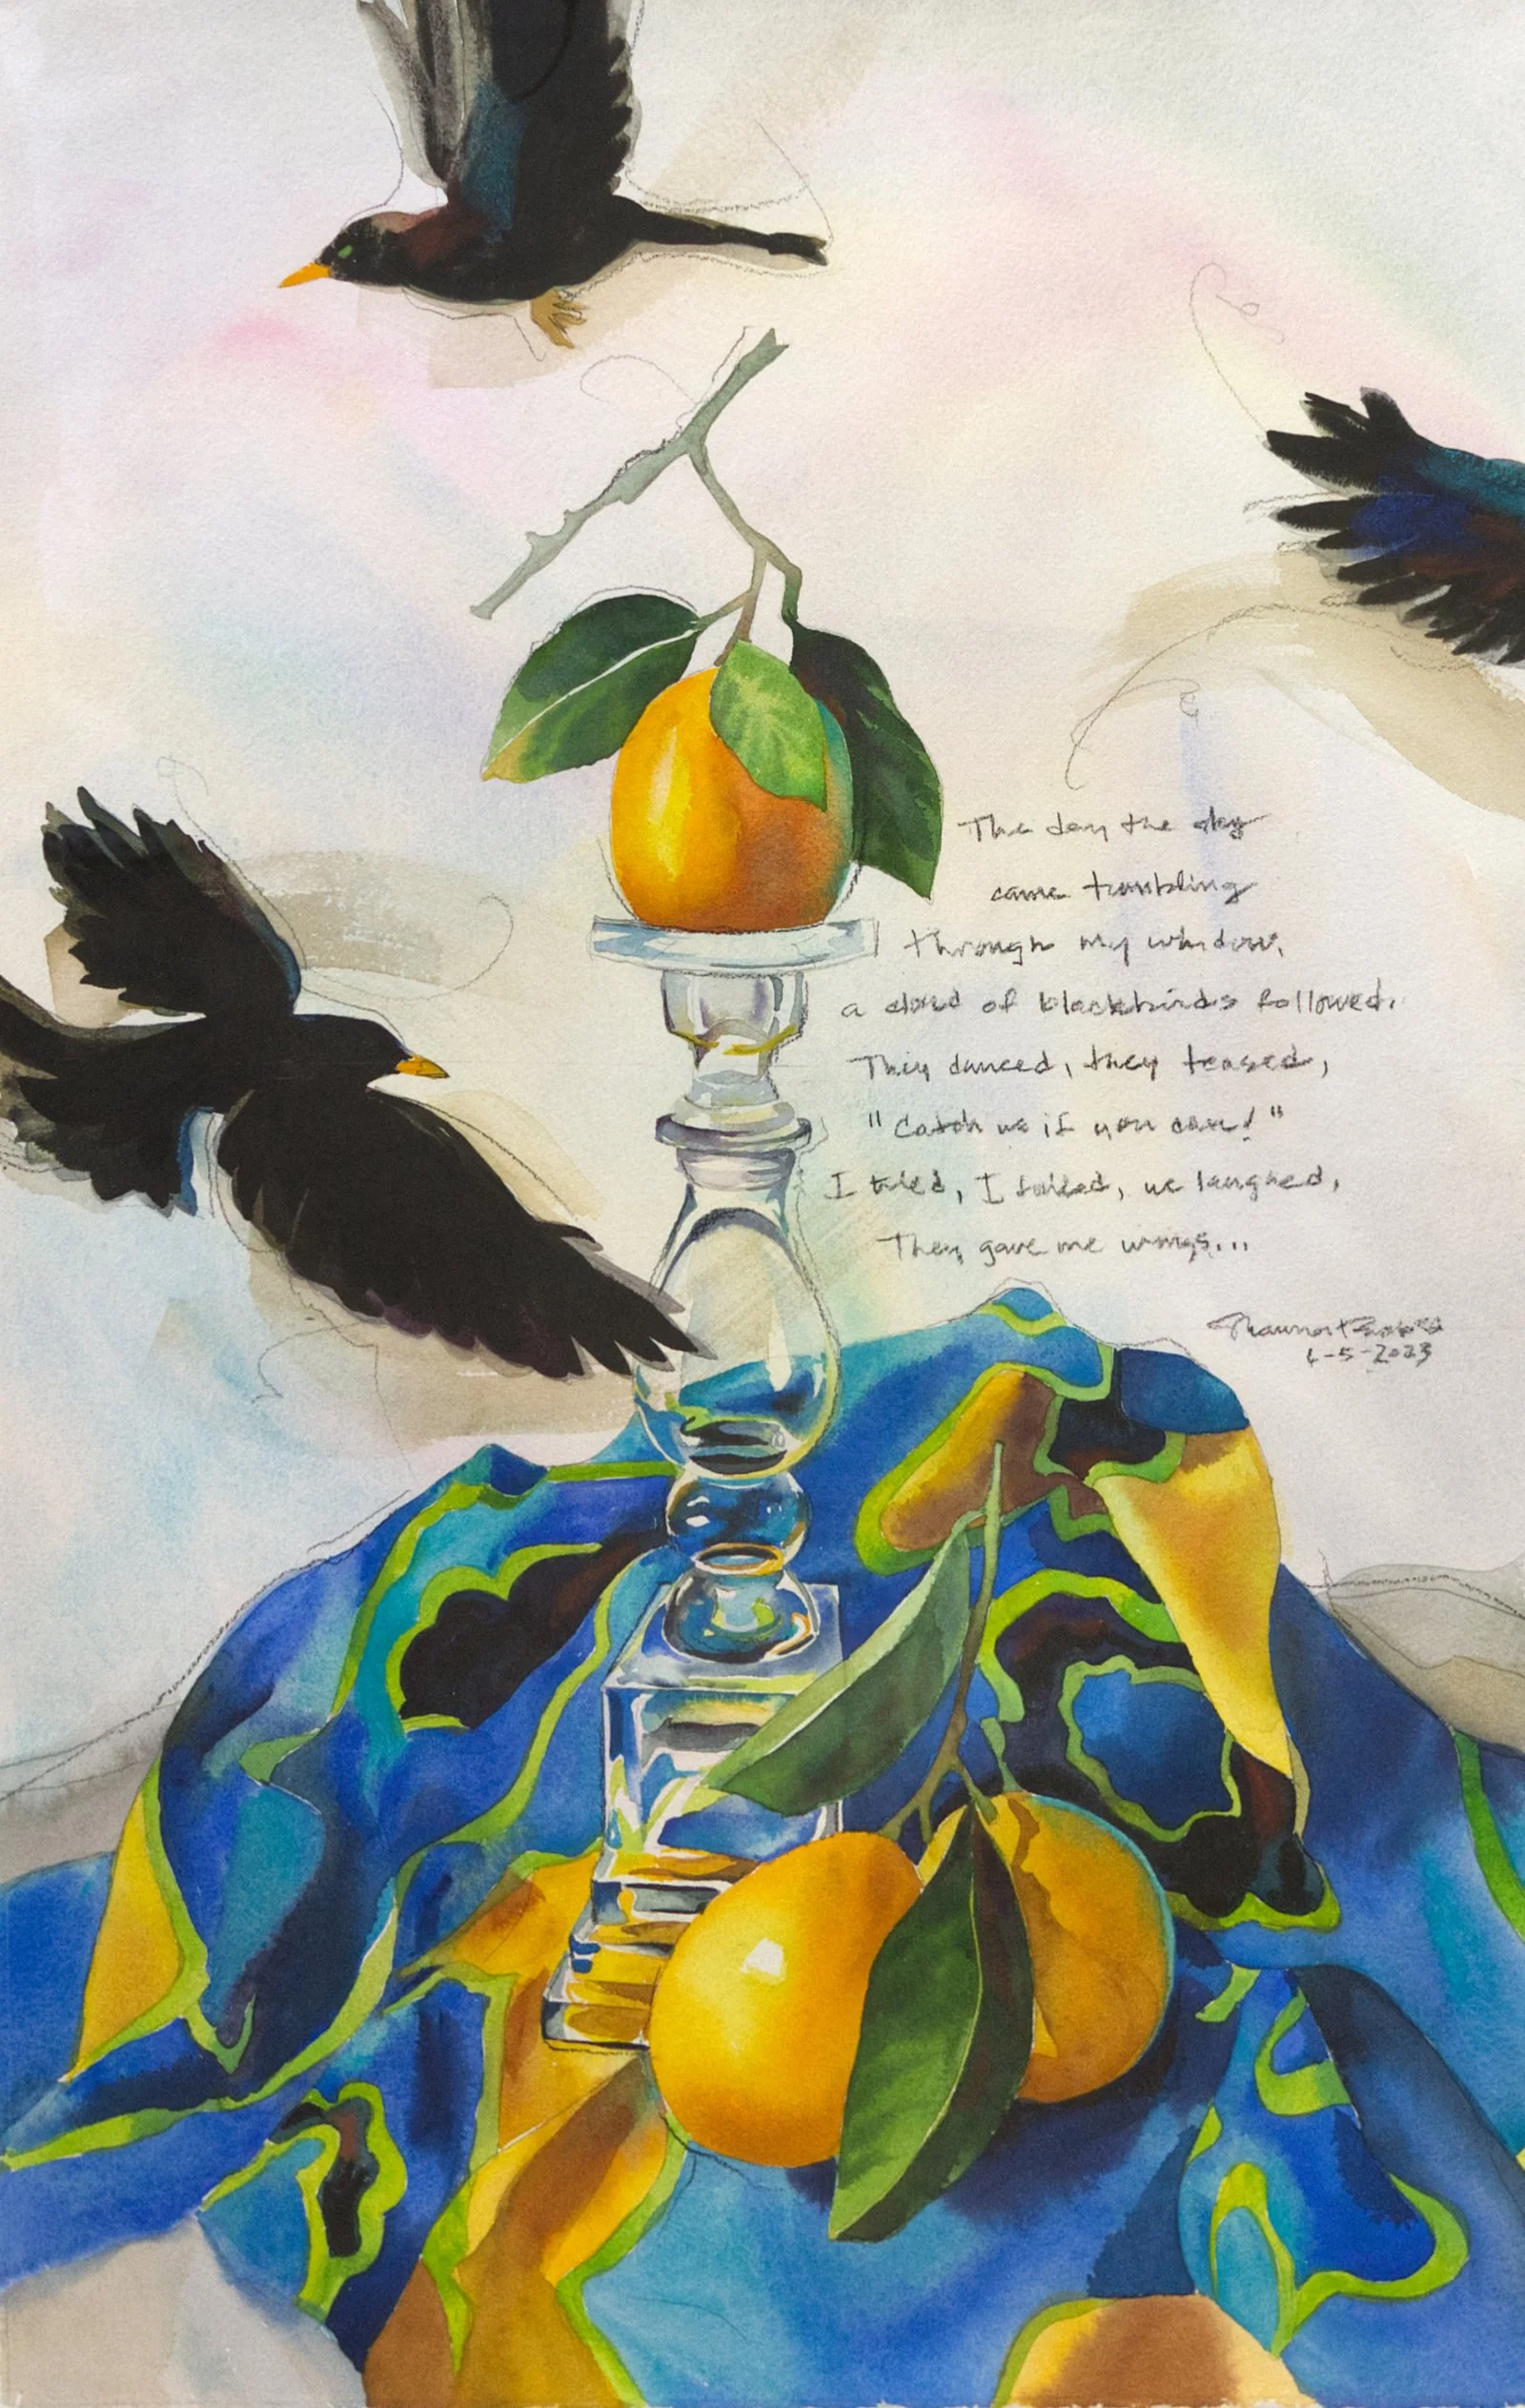 The day the sky
came tumbling
through my window,
a cloud of blackbirds followed.
They danced, they teased,
"Catch us if you can!"
I tried, I failed, we laughed,
They gave me wings...
6-5-2023